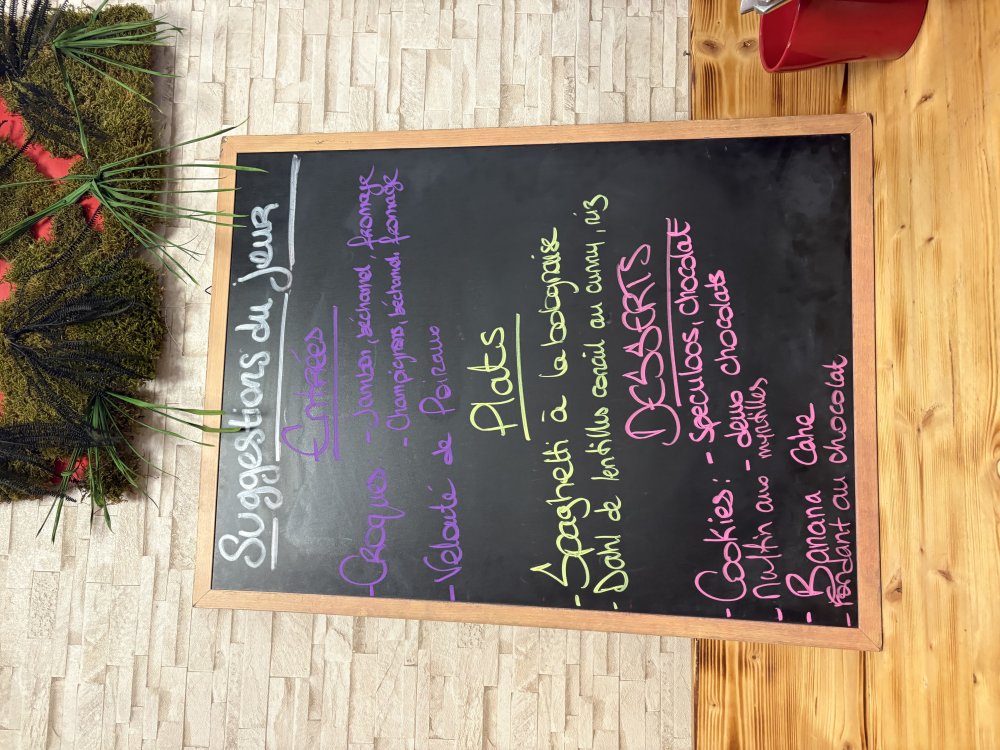 Suggestions du jour
Entrées
- Croques - Jambon, béchamel, fromage
- Champignons, béchamel, fromage
- Velouté de Poireaux
Plats
- Spaghetti à la bolognaise
- Dahl de lentilles corail au curry, riz
DESSERTS
- Cookies : - Speculoos, chocolat
- deux chocolats
- Muffin aux myrtilles
- Banana Cake
- Fondant au chocolat